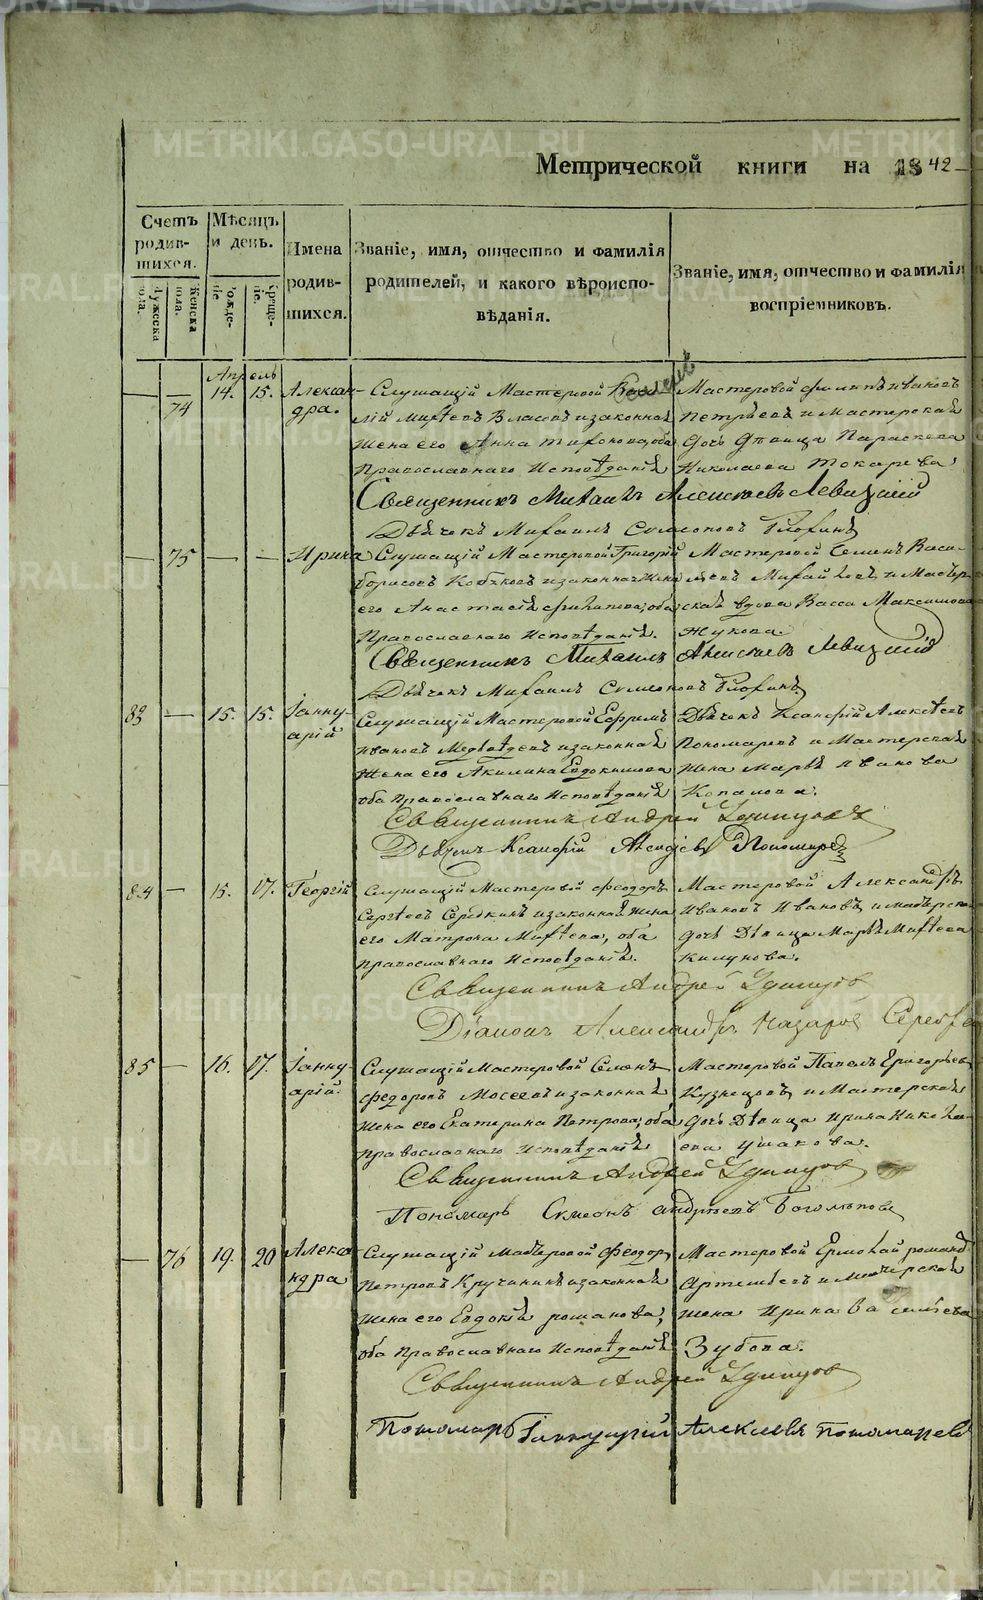 METRIKI.GASO-URAL.RU
Метрической книги на 1842
Счетъ родившихся.
Мѣсяцъ и день.
Имена родившихся.
Званіе, имя, отчество и фамилія родителей, и какого вѣроисповѣданія.
Званіе, имя, отчество и фамилія воспріемниковъ.
Мужеска пола.
Женска пола.
Рожденіе.
Крещеніе.
Апрель
— 74 14. 15. Александра.
Служащій Мастеровой
Власовъ и законная
жена его Анна оба
Православнаго Исповѣданія
Мастеровой Филипъ Ивановъ
Петръевъ и Мастерская
дочь дѣвица Параскева
Николаева Токарева
Священникъ Михаилъ Алексѣевъ Левицкій
Дьячекъ Михаилъ Симеоновъ
— 75 — — Ирина
Служащій Мастеровой Григорій
Борисовъ и законная жена
его Анастасія Филипова, оба
Православнаго Исповѣданія.
Мастеровой Семенъ Васи-
льевъ и Мастер-
ская вдова Васса Максимова
Жукова.
Священникъ Михаилъ Алексѣевъ Левицкій
Дьячекъ Михаилъ Симеоновъ
83 — 15. 15. Іаннуарій
Служащій Мастеровой Ефремъ
Ивановъ Медвѣдевъ и законная
жена его Акилина Евдокимова
оба Православнаго Исповѣданія
Дьячекъ Ксанфій Алексѣевъ
Пономаревъ и Мастерская
жена Марья Иванова
Копалова.
Священникъ Андрей Удинцовъ
Дьячекъ Ксанфій Алексѣевъ Пономаревъ
84 — 15. 17. Георгій
Служащій Мастеровой Феодоръ
Сергѣевъ Середкинъ и законная жена
его Матрона, оба
православнаго Исповѣданія.
Мастеровой Александръ
Ивановъ Ивановъ, и мастерская
дочь Дѣвица Марья
Килунова.
Священникъ Андрей Удинцовъ
Діаконъ Александръ Назаровъ
85 — 16. 17. Іаннуарій.
Служащій Мастеровой Семенъ
Федоровъ Мосеевъ и законная
жена его Екатерина Петрова, оба
православнаго Исповѣданія
Мастеровой Павелъ Григорьевъ
Кузнецовъ и Мастерская
дочь Дѣвица Ирина Никола-
ева Ушакова.
Священникъ Андрей Удинцовъ
Пономарь Симеонъ Андрѣевъ Богомоловъ
— 76 19. 20 Александра
Служащій Мастеровой Феодоръ
Петровъ Кручининъ и законная
жена его Евдокія Романова,
оба Православнаго Исповѣданія
Мастеровой Ермолай Романовъ
Артемьевъ и мастерская
жена Ирина Васильева
Зубова.
Священникъ Андрей Удинцовъ
Пономарь Іаннуарій Алексѣевъ Пономаревъ